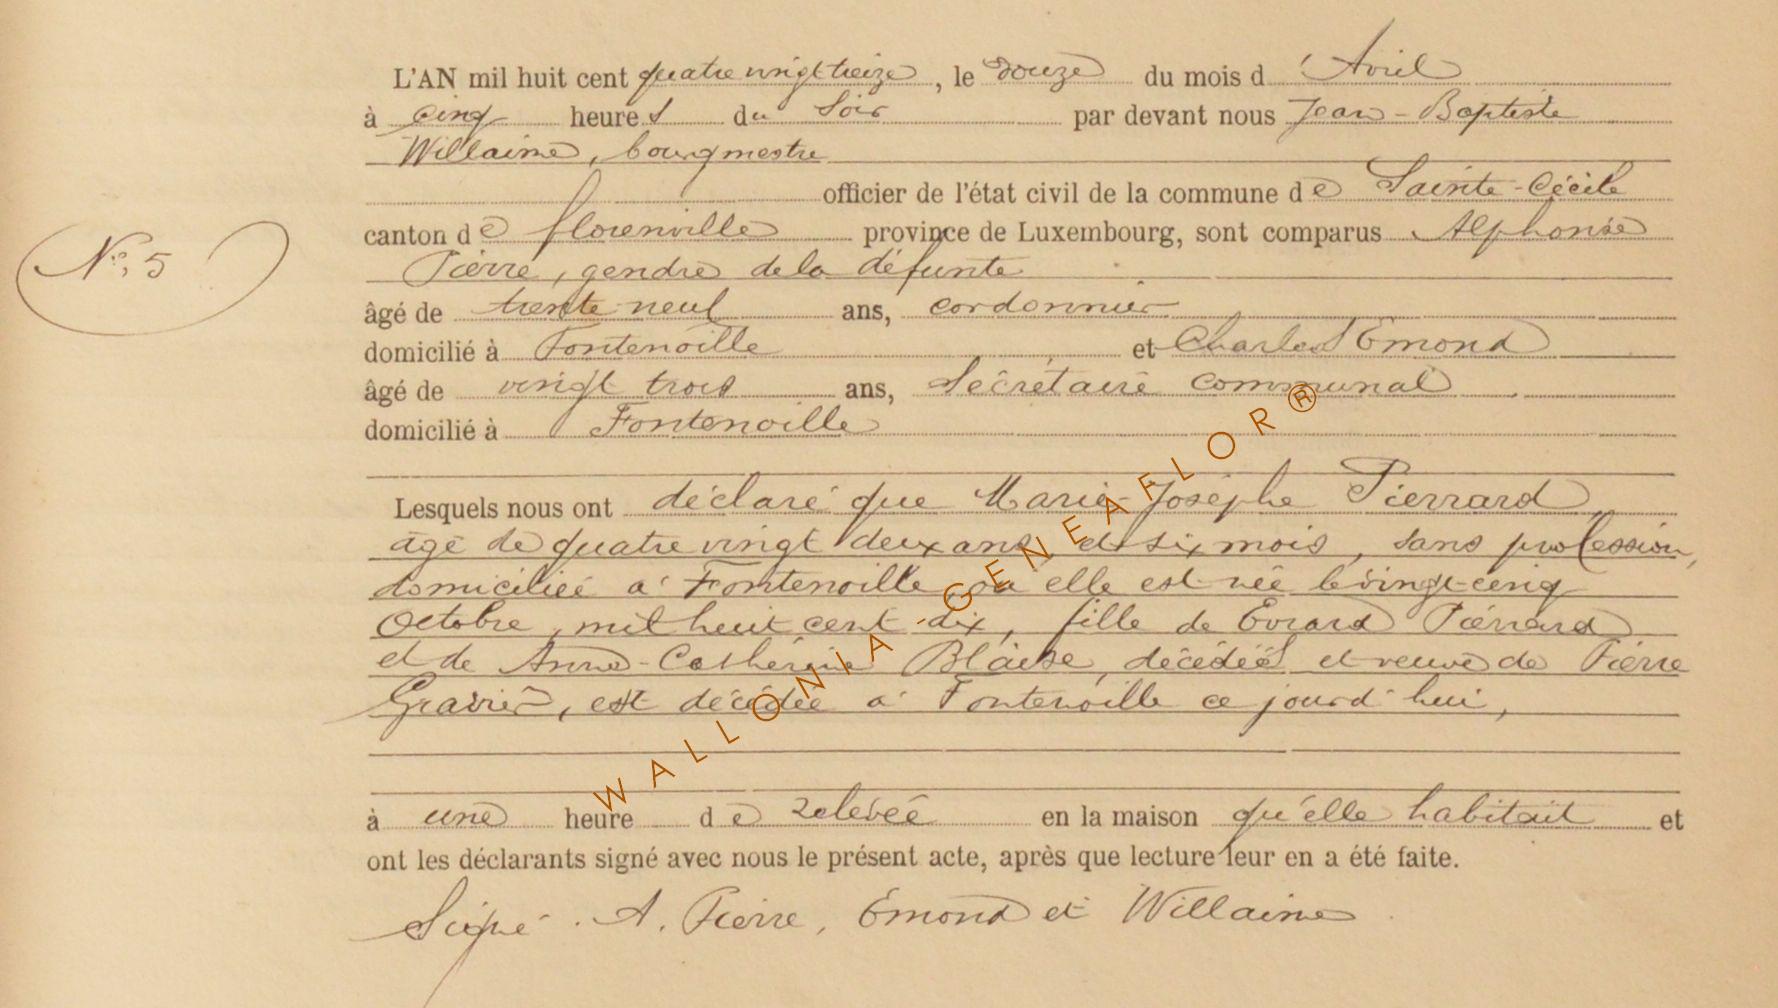 L'AN mil huit cent quatre vingt treize, le douze du mois d'Avril
à cinq heures du soir par devant nous Jean-Baptiste
Willaime, bourgmestre
officier de l'état civil de la commune de Sainte-Cécile
N° 5
canton de florenville province de Luxembourg, sont comparus Alphonse
Pierre, gendre de la défunte
âgé de trente neuf ans, cordonnier
domicilié à Fontenoille et Charles Emond
âgé de vingt trois ans, Secrétaire communal
domicilié à Fontenoille
Lesquels nous ont déclaré que Marie-Josèphe Pierrard
âgé de quatre vingt deux ans et six mois, sans profession,
domiciliée à Fontenoille où elle est née le vingt-cinq
Octobre, mil huit cent dix, fille de Evrard Piérrard
et de Anne-Cathérine Blaise, décédés et veuve de Pierre
Gravier, est décédée à Fontenoille ce jourd'hui,
à une heure de relevée en la maison qu'elle habitait et
ont les déclarants signé avec nous le présent acte, après que lecture leur en a été faite.
Signé. A. Pierre, Emond et Willaime
WALLONIA-GENEAFLOR®